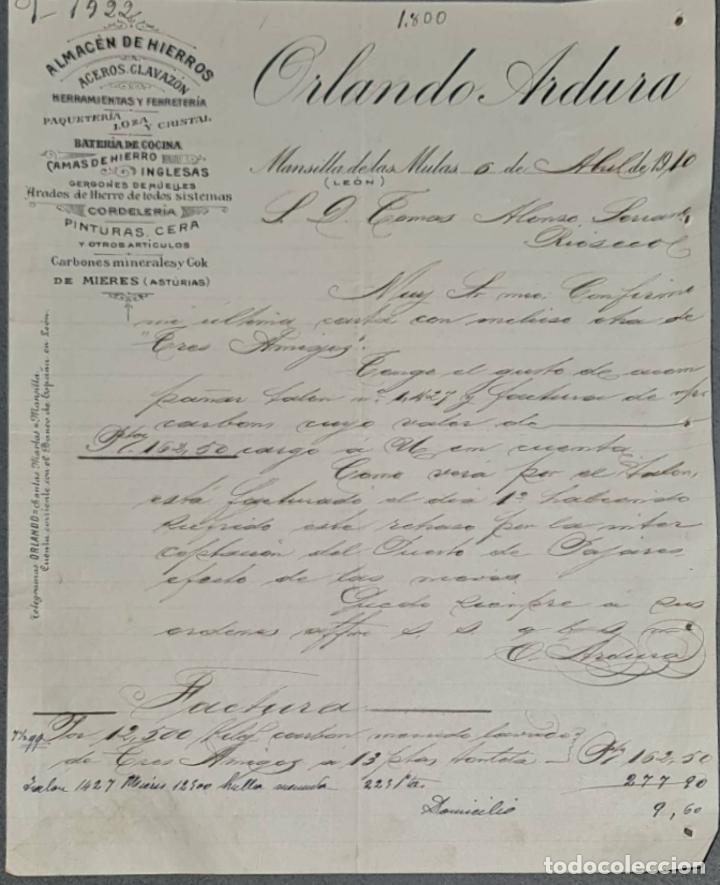 1922
1.800
ALMACÉN DE HIERROS
ACEROS, CLAVAZÓN
HERRAMIENTAS Y FERRETERÍA
PAQUETERÍA LOZA Y CRISTAL
BATERÍA DE COCINA
CAMAS DE HIERRO
INGLESAS
GERGONES DE MUELLES
Arados de Hierro de todos sistemas
CORDELERÍA
PINTURAS, CERA
Y OTROS ARTÍCULOS
Carbones minerales y Cok
DE MIERES (ASTURIAS)
Telegramas ORLANDO=Santas Martas=Mansilla.
Cuenta corriente con el Banco de España en León.
Orlando Ardura
Mansilla de las Mulas 6 de Abril de 1910
(LEÓN)
S. D. Tomas Alonso
Rioseco
Muy Sr mio: Confirmo
mi última carta con incluso otra de
"Tres Amigos".
Tengo el gusto de acom
pañar talon nº 1.427 y factura de
carbon cuyo valor de
Ptas. 162,50 cargo á U en cuenta
Como verá por el talon,
está facturado el dia 1º habiendo
sufrido este retraso por la inter
ceptación del Puerto de Pajares,
efecto de las nieves
Quedo siempre á sus
ordenes affmo s. s. q b s m
O. Ardura
Factura
Por 12,500 Kilos carbón menudo lavado
de Tres Amigos á 13 ptas tonelada Pts 162,50
Talon 1427 Mieres 12500 hulla menuda 277 90
Domicilio 9,60
todocoleccion.net